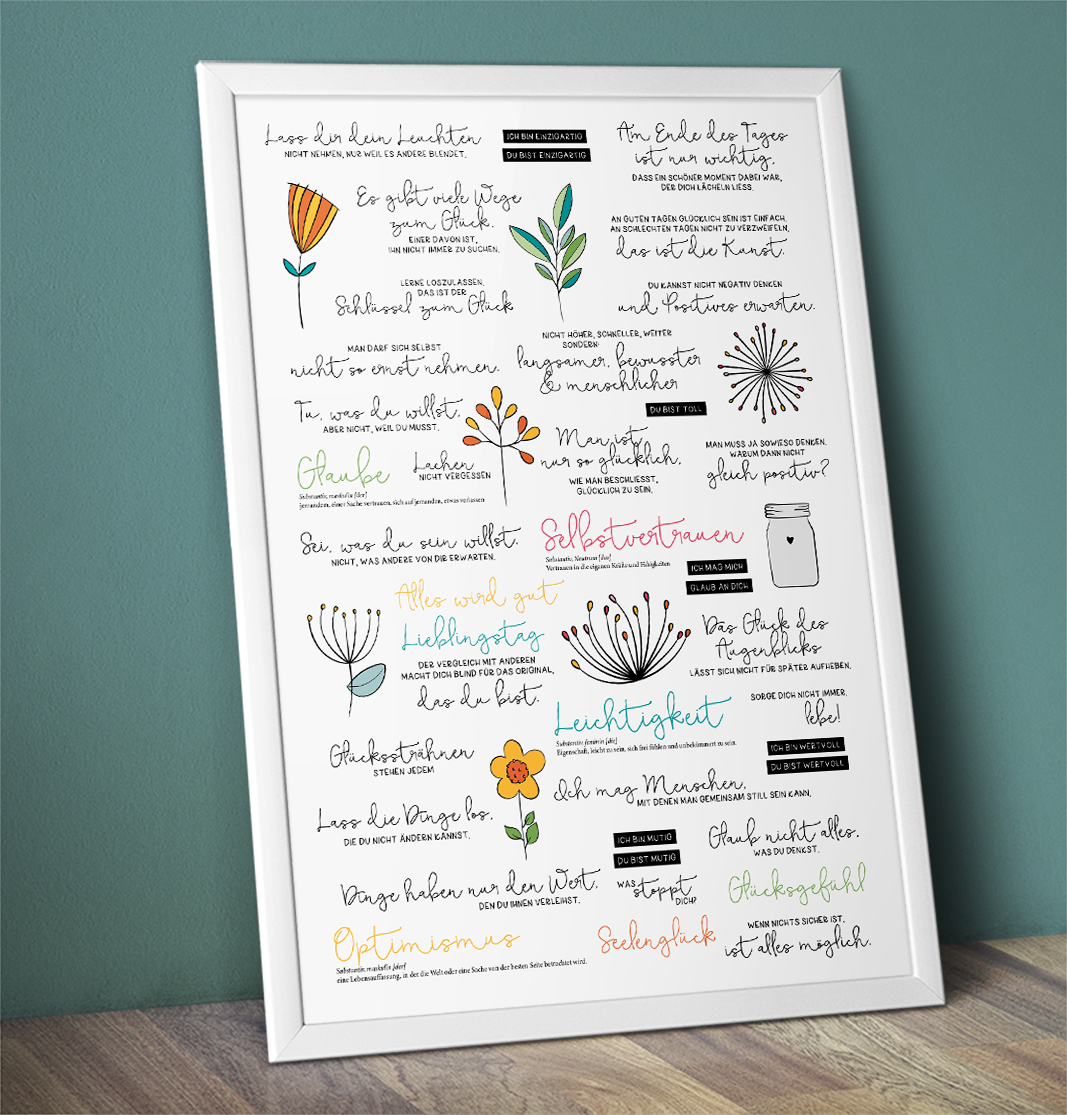 Lass dir dein Leuchten
NICHT NEHMEN, NUR WEIL ES ANDERE BLENDET.
ICH BIN EINZIGARTIG
DU BIST EINZIGARTIG
Am Ende des Tages
ist nur wichtig,
DASS EIN SCHÖNER MOMENT DABEI WAR,
DER DICH LÄCHELN LIESS.
Es gibt viele Wege
zum Glück.
EINER DAVON IST,
IHN NICHT IMMER ZU SUCHEN.
AN GUTEN TAGEN GLÜCKLICH SEIN IST EINFACH.
AN SCHLECHTEN TAGEN NICHT ZU VERZWEIFELN,
das ist die Kunst.
LERNE LOSZULASSEN,
DAS IST DER
Schlüssel zum Glück
DU KANNST NICHT NEGATIV DENKEN
und Positives erwarten.
MAN DARF SICH SELBST
nicht so ernst nehmen.
NICHT HÖHER, SCHNELLER, WEITER
SONDERN:
langsamer, bewusster
& menschlicher
Tu, was du willst,
ABER NICHT, WEIL DU MUSST.
DU BIST TOLL
Man ist
nur so glücklich,
WIE MAN BESCHLIESST,
GLÜCKLICH ZU SEIN.
MAN MUSS JA SOWIESO DENKEN,
WARUM DANN NICHT
gleich positiv?
Glaube
Substantiv, maskulin [der]
jemandem, einer Sache vertrauen, sich auf jemanden, etwas verlassen
Lachen
NICHT VERGESSEN
Sei, was du sein willst.
NICHT, WAS ANDERE VON DIR ERWARTEN.
Selbstvertrauen
Substantiv, Neutrum [das]
Vertrauen in die eigenen Kräfte und Fähigkeiten
ICH MAG MICH
GLAUB AN DICH
Alles wird gut
Lieblingstag
DER VERGLEICH MIT ANDEREN
MACHT DICH BLIND FÜR DAS ORIGINAL,
das du bist.
Das Glück des
Augenblicks
LÄSST SICH NICHT FÜR SPÄTER AUFHEBEN.
Leichtigkeit
Substantiv, feminin [die]
Eigenschaft, leicht zu sein, sich frei fühlen und unbekümmert zu sein.
SORGE DICH NICHT IMMER,
lebe!
ICH BIN WERTVOLL
DU BIST WERTVOLL
Glückssträhnen
STEHEN JEDEM
Ich mag Menschen,
MIT DENEN MAN GEMEINSAM STILL SEIN KANN.
Lass die Dinge los,
DIE DU NICHT ÄNDERN KANNST.
ICH BIN MUTIG
DU BIST MUTIG
Glaub nicht alles,
WAS DU DENKST.
Dinge haben nur den Wert,
DEN DU IHNEN VERLEIHST.
WAS
stoppt
DICH?
Glücksgefühl
Optimismus
Substantiv, maskulin [der]
eine Lebensauffassung, in der die Welt oder eine Sache von der besten Seite betrachtet wird.
Seelenglück
WENN NICHTS SICHER IST,
ist alles möglich.